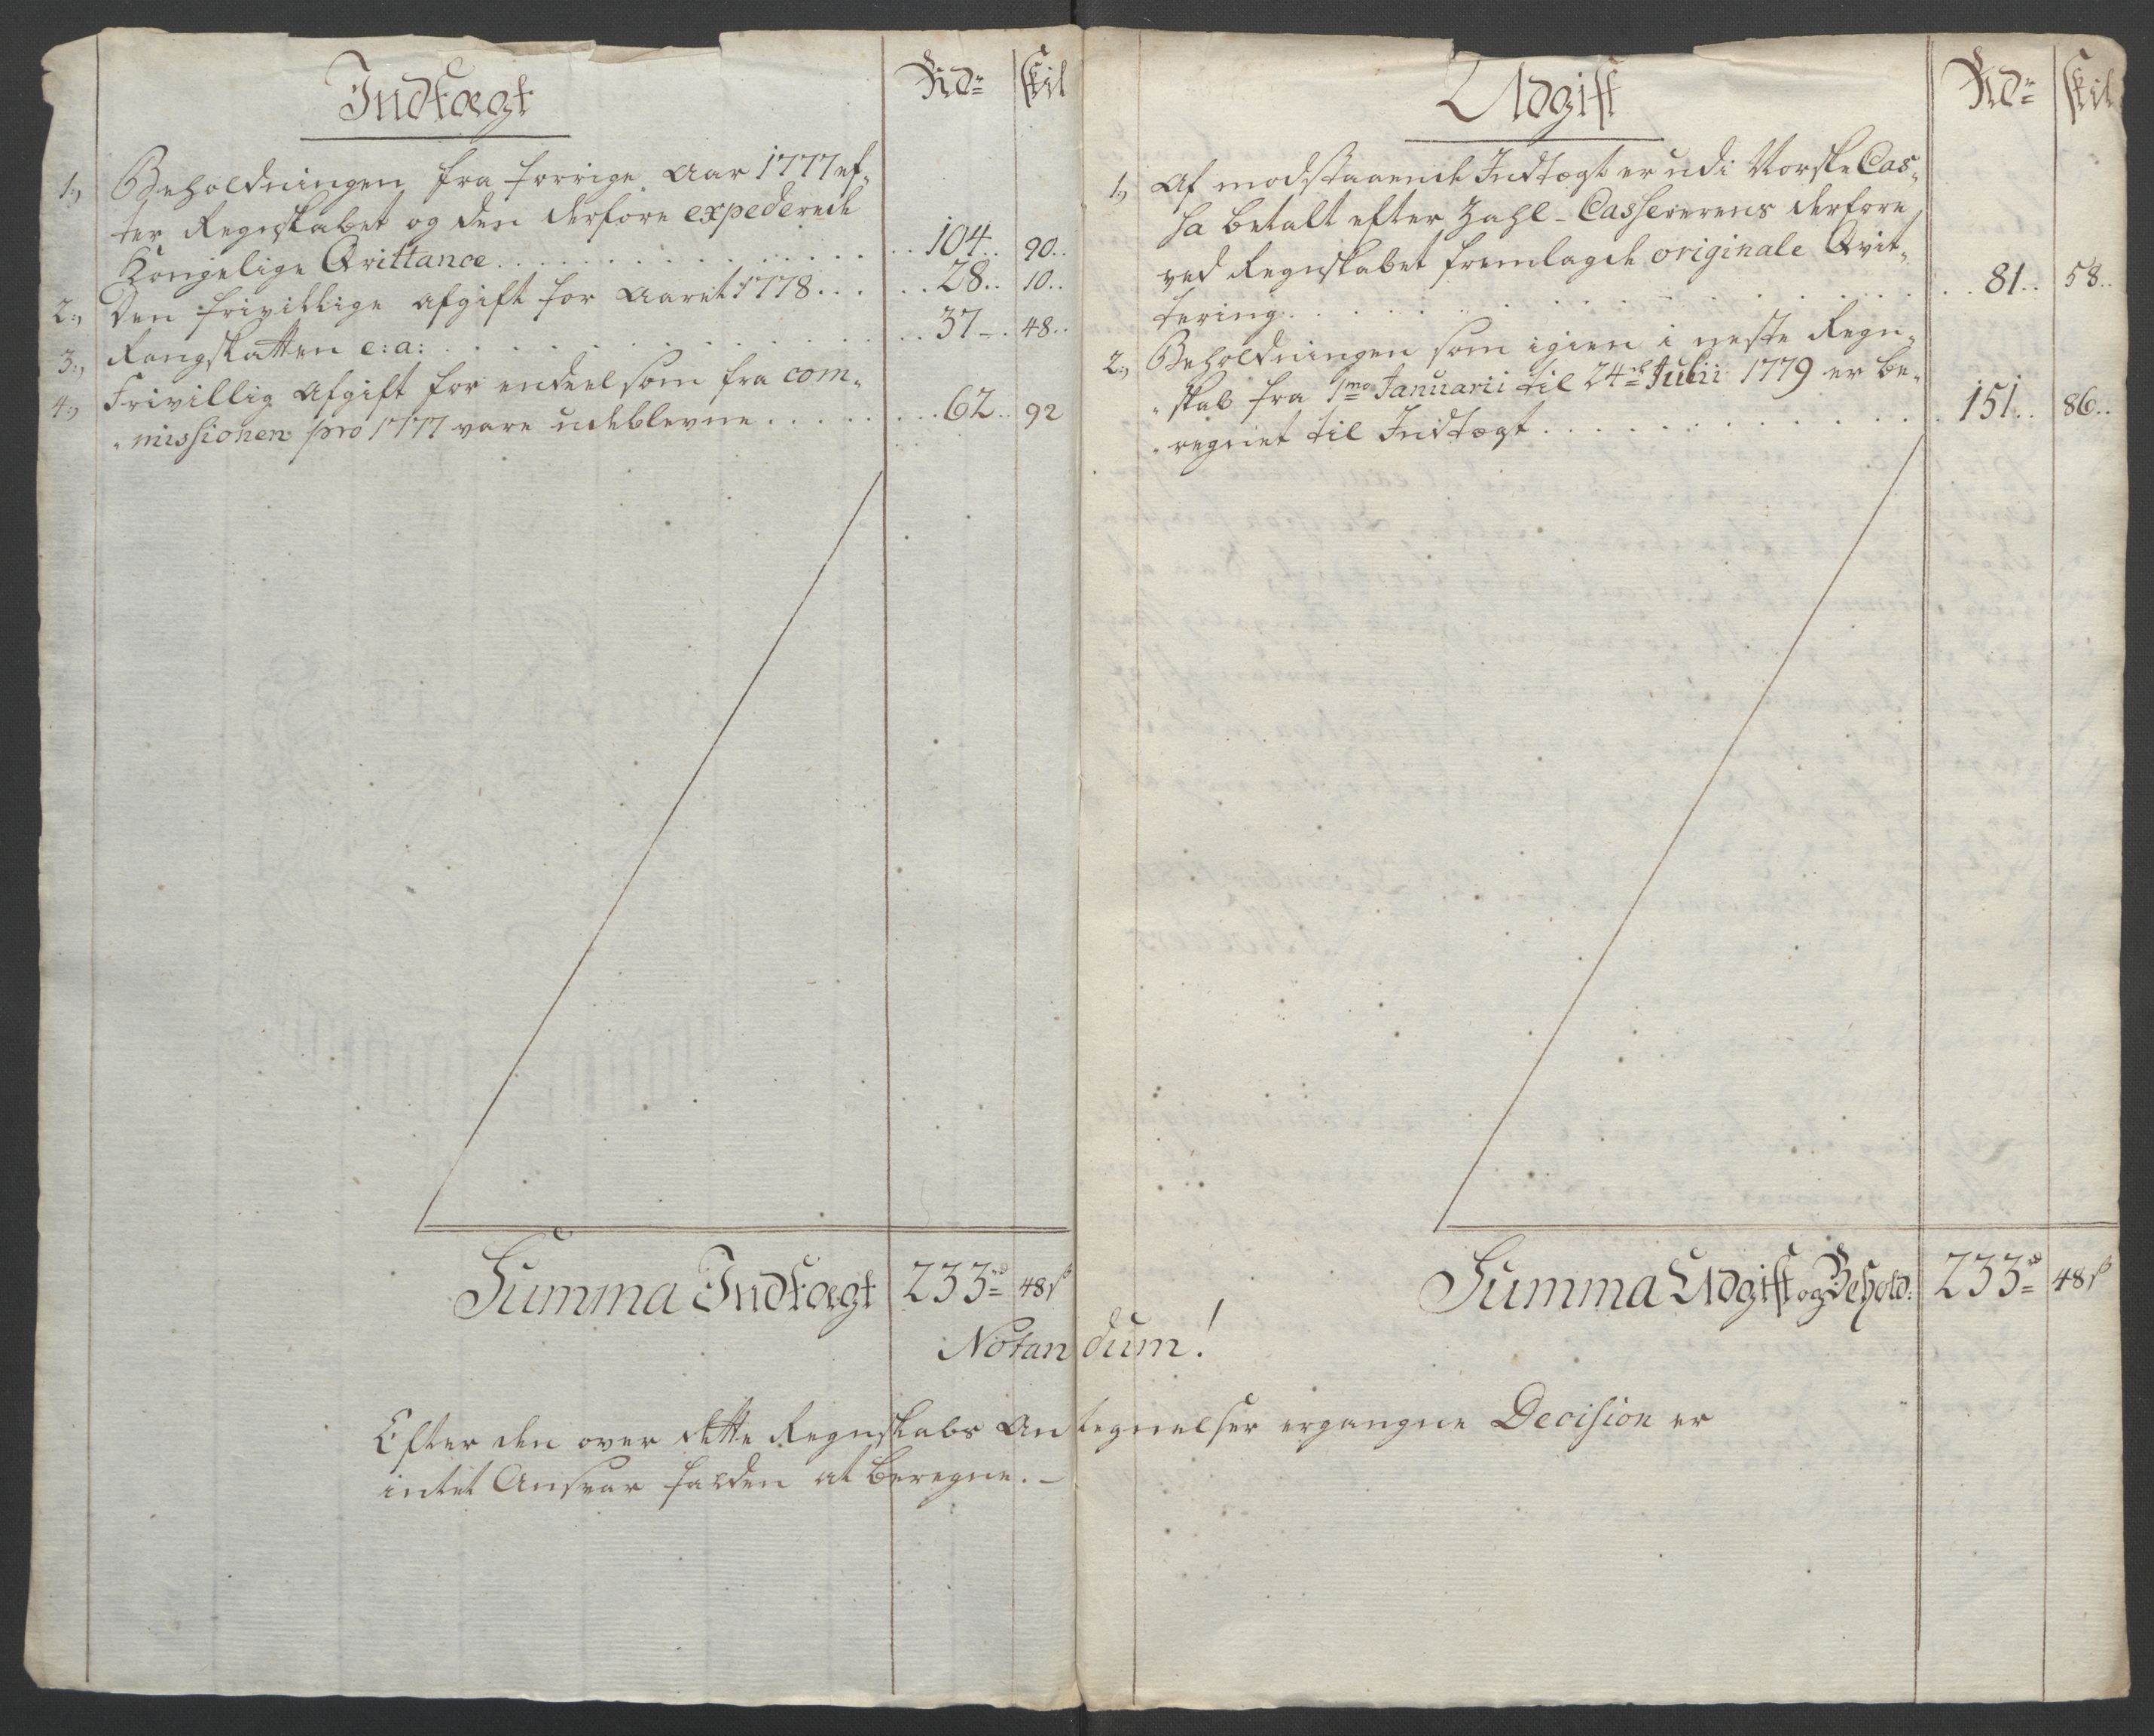 Indtægt
Rd. skil
1.) Beholdningen fra forrige Aar 1777 ef-
ter Regnskabet og den derfore expederede
Kongelige Qvittance . . . 104.. 90..
2.) Den frivillige Afgift for Aaret 1778 . . . 28.. 10..
3.) Rangskatten e: a: . . . 37 - . 48..
4.) Frivillig Afgift for endeel som fra com-
missionen pro 1777 vare udeblevne . . . 62.. 92
Summa Indtægt 233 rd 48 s
Udgift
Rd. skil
1.) Af modstaaende Indtægt er udi Norske Cas-
sa betalt efter Zahl-Casserens derfore
ved Regnskabet fremlagde originale Qvit-
tering . . . 81.. 58..
2.) Beholdningen som igien i neste Regn-
skab fra 1mo Januarii til 24de Julii 1779 er be-
regnet til Indtægt . . . 151.. 86..
Summa Udgift og Behold: 233 rd 48 s
Notandum!
Efter den over dette Regnskabs Antegnelser ergangne Decision er
intet Ansvar falden at beregne. -